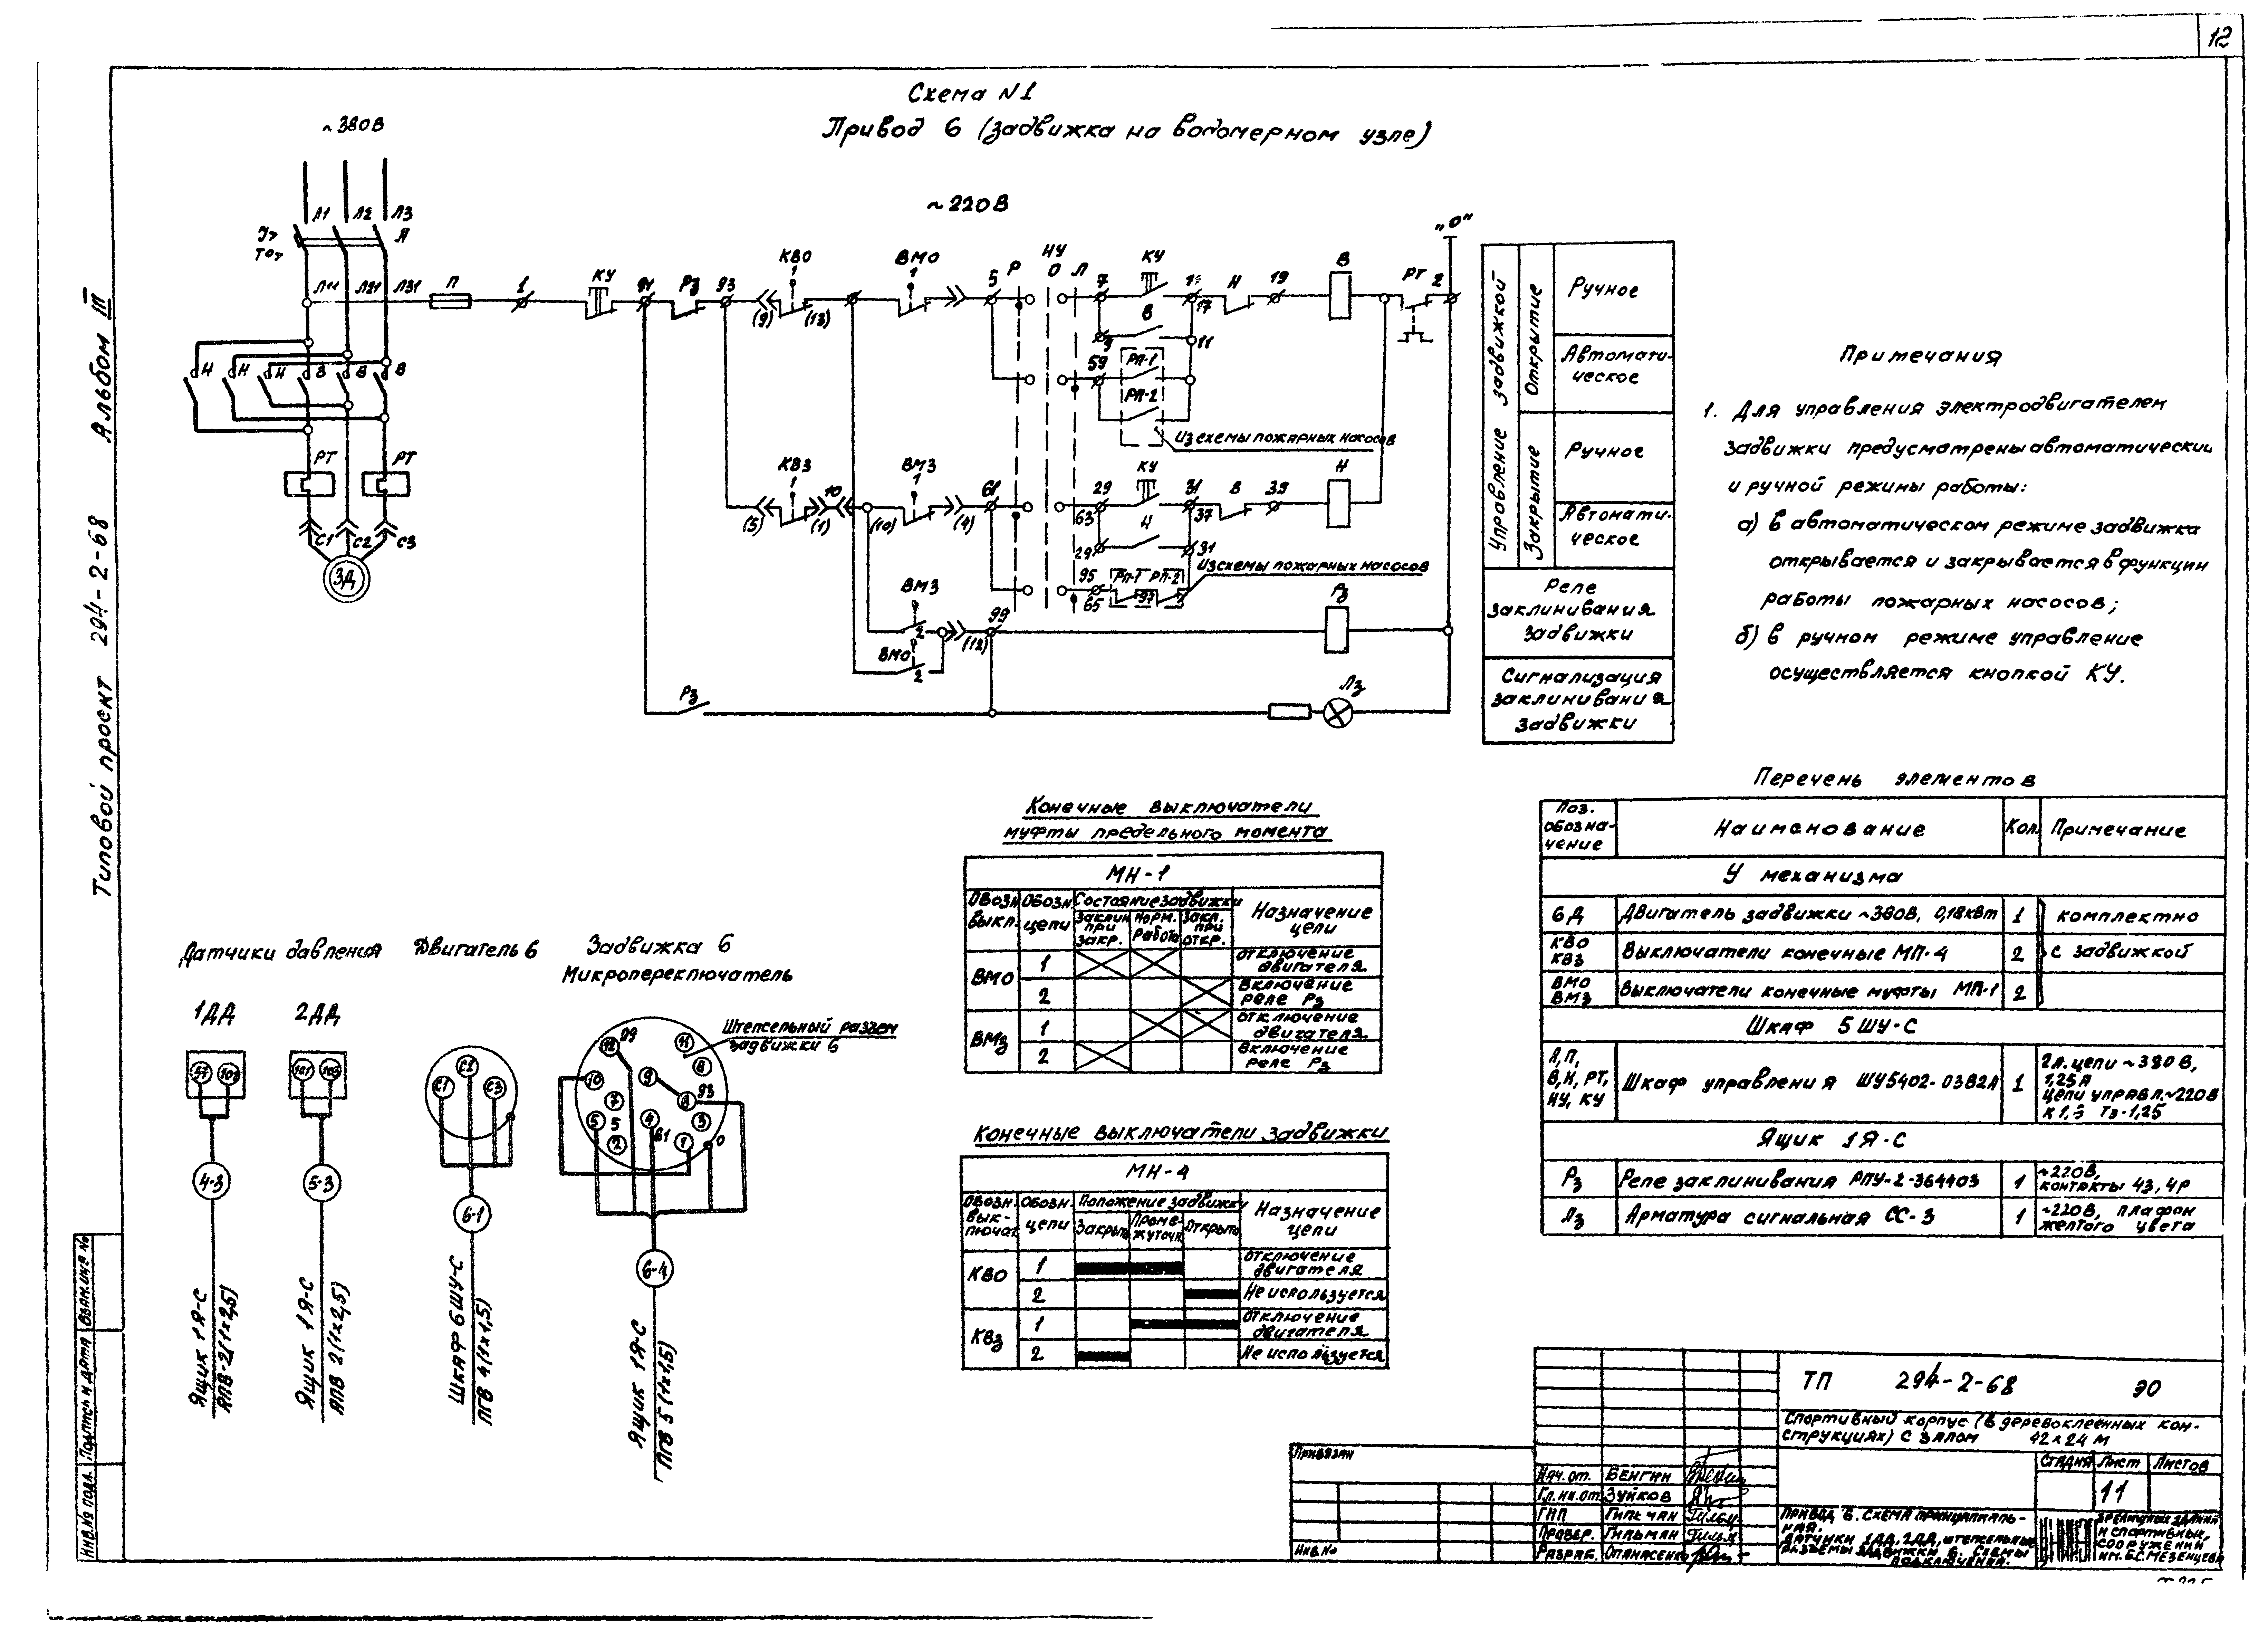 12
Типовой проект 294-2-68 Альбом III
Схема N1
Привод 6 (задвижка на водомерном узле)
~380В
~220В
Л1 Л2 Л3
А
Л11 Л21 Л31
П
1
КУ
91
Рз
93
КВО
1
(9)
(13)
ВМО
1
5
Р
НУ
О
Л
7
КУ
17
Н
19
В
РТ
2
„О"
В
9
11
59
РП-1
РП-2
Из схемы пожарных насосов
Н Н Н В В В
РТ РТ
С1 С2 С3
3Д
КВЗ
1
(5)
(1)
10
(10)
ВМЗ
1
(4)
61
29
63
КУ
31
37
В
39
Н
Н
29
31
95
65
РП-1 РП-2
97
Из схемы пожарных насосов
ВМЗ
2
ВМО
2
(12)
99
Рз
Рз
Лз
Управление задвижкой
Открытие
Ручное
Автомати-
ческое
Закрытие
Ручное
Автомати-
ческое
Реле
заклинивания
задвижки
Сигнализация
заклинивания
задвижки
Примечания
1. Для управления электродвигателем
задвижки предусмотрены автоматический
и ручной режимы работы:
а) в автоматическом режиме задвижка
открывается и закрывается в функции
работы пожарных насосов;
б) в ручном режиме управление
осуществляется кнопкой КУ.
Датчики давления
1ДД 2ДД
101
4-3
5-3
Ящик 1Я-С
АПВ-2(1х2,5)
Ящик 1Я-С
АПВ 2(1х2,5)
Двигатель 6
С1 С2 С3
6-1
Шкаф 6ШУ-С
ПГВ 4(1х1,5)
Задвижка 6
Микропереключатель
Штепсельный разъем
задвижки 6
99
12
11
10
9
8
93
7
5
5
4
61
3
2
1
0
6-4
Ящик 1Я-С
ПГВ 5(1х1,5)
Конечные выключатели
муфты предельного момента
МН-1
Обозн. выкл.
Обозн. цепи
Состояние задвижки
Заклин. при закр.
Норм. работа
Закл. при откр.
Назначение цепи
ВМО
1 отключение двигателя
2 Включение реле Рз
ВМз
1 отключение двигателя
2 Включение реле Рз
Конечные выключатели задвижки
МН-4
Обозн. вык- лючат.
Обозн. цепи
Положение задвижки
Закрыта
Проме- жуточн.
Открыта
Назначение цепи
КВО
1 отключение двигателя
2 Не используется
КВз
1 отключение двигателя
2 Не используется
Перечень элементов
Поз. обозна- чение
Наименование
Кол.
Примечание
У механизма
6Д Двигатель задвижки ~380В, 0,18кВт 1 комплектно
КВО КВЗ Выключатели конечные МП-4 2 с задвижкой
ВМО ВМЗ Выключатели конечные муфты МП-1 2
Шкаф 5ШУ-С
А, П, В, Н, РТ, НУ, КУ Шкаф управления ШУ5402-03В2А 1
Гл. цепи ~380В,
1,25А
цепи управл. ~220В
Тэ-1,25
Ящик 1Я-С
Рз Реле заклинивания РПУ-2-364403 1 ~220В, контакты 4З, 4Р
Лз Арматура сигнальная СС-3 1 ~220В, плафон желтого цвета
ТП 294-2-68 ЭО
Спортивный корпус (в деревоклееных кон-
струкциях) с залом 42х24 м
Стадия Лист Листов
11
Привод 6. Схема принципиаль-
ная.
Датчики 1ДД, 2ДД, штепсельные
разъемы задвижки 6. Схемы
подключения.
зрелищных зданий
и спортивных
сооружений
им. Б.С. Мезенцева
Привязан
Инв. №
Нач. от. Бенгин
Гл. ин. от. Зуйков
ГИП Гильман
Провер. Гильман
Разраб. Опанасенко
Инв. № подл. Подпись и дата Взам. инв №